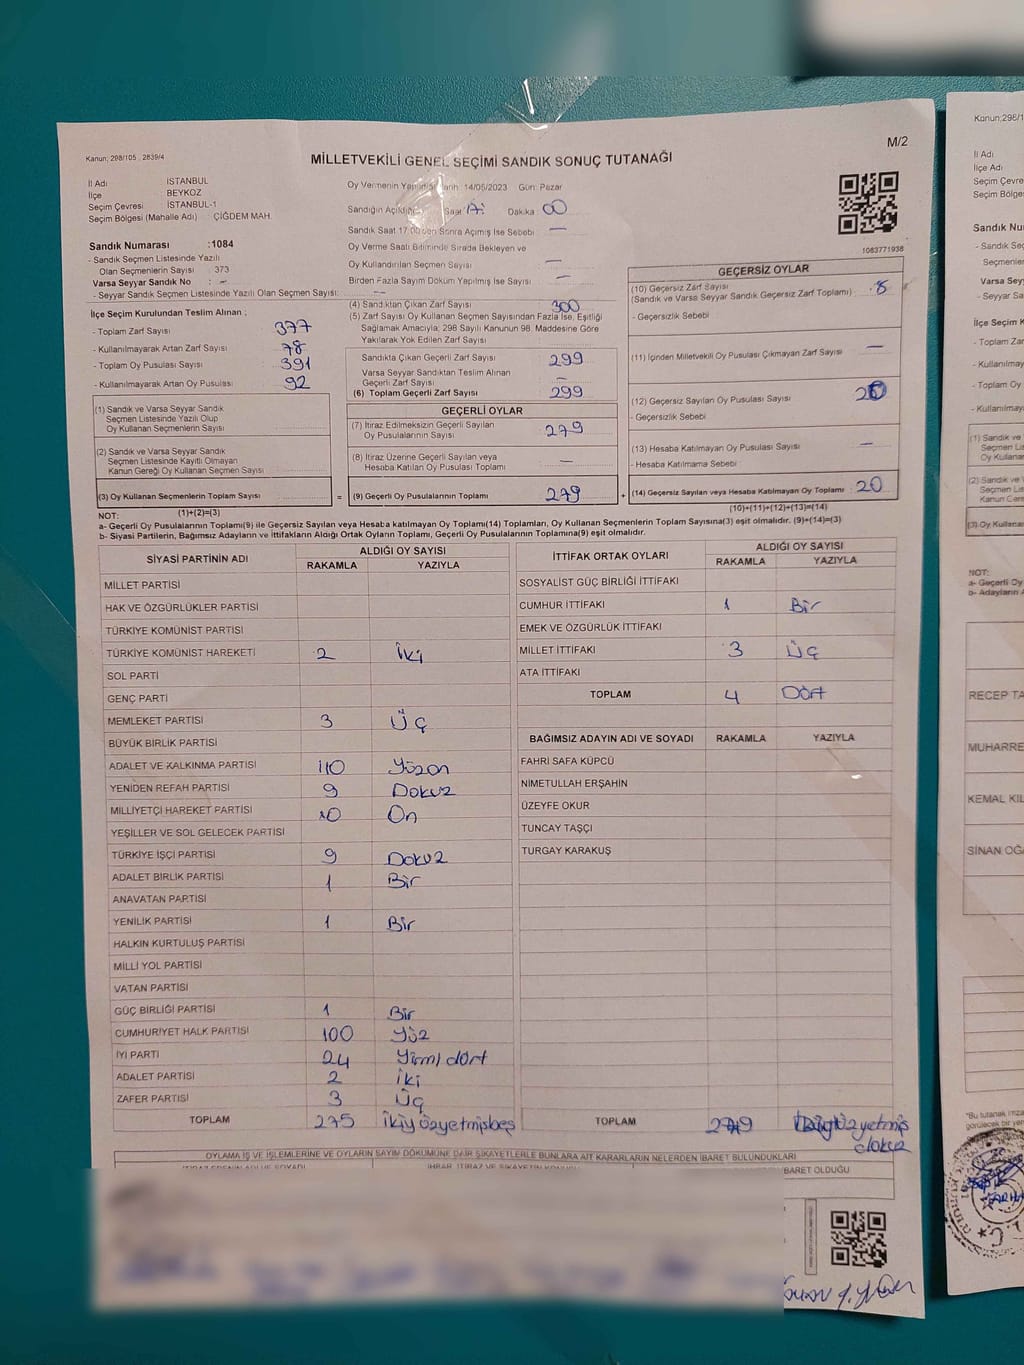 Kanun; 298/105 , 2839/4
M/2
MİLLETVEKİLİ GENEL SEÇİMİ SANDIK SONUÇ TUTANAĞI
İl Adı : İSTANBUL
İlçe : BEYKOZ
Seçim Çevresi : İSTANBUL-1
Seçim Bölgesi (Mahalle Adı) : ÇİĞDEM MAH.
Sandık Numarası :1084
- Sandık Seçmen Listesinde Yazılı
Olan Seçmenlerin Sayısı : 373
Varsa Seyyar Sandık No : -
- Seyyar Sandık Seçmen Listesinde Yazılı Olan Seçmen Sayısı: --
İlçe Seçim Kurulundan Teslim Alınan ;
- Toplam Zarf Sayısı 377
- Kullanılmayarak Artan Zarf Sayısı 78
- Toplam Oy Pusulası Sayısı 391
- Kullanılmayarak Artan Oy Pusulası 92
(1) Sandık ve Varsa Seyyar Sandık
Seçmen Listesinde Yazılı Olup
Oy Kullanan Seçmenlerin Sayısı
(2) Sandık ve Varsa Seyyar Sandık
Seçmen Listesinde Kayıtlı Olmayan
Kanun Gereği Oy Kullanan Seçmen Sayısı
(3) Oy Kullanan Seçmenlerin Toplam Sayısı
(1)+(2)=(3)
Oy Vermenin Tarih: 14/05/2023 Gün: Pazar
Sandığın Açıldığı Saat Dakika 00
Sandık Saat 17.00'den Sonra Açımış İse Sebebi —
Oy Verme Saati Bitiminde Sırada Bekleyen ve
Oy Kullandırılan Seçmen Sayısı —
Birden Fazla Sayım Döküm Yapılmış İse Sayısı —
(4) Sandıktan Çıkan Zarf Sayısı 300
(5) Zarf Sayısı Oy Kullanan Seçmen Sayısından Fazla İse, Eşitliği
Sağlamak Amacıyla; 298 Sayılı Kanunun 98. Maddesine Göre
Yakılarak Yok Edilen Zarf Sayısı
Sandıkta Çıkan Geçerli Zarf Sayısı 299
Varsa Seyyar Sandıktan Teslim Alınan
Geçerli Zarf Sayısı —
(6) Toplam Geçerli Zarf Sayısı 299
GEÇERLİ OYLAR
(7) İtiraz Edilmeksizin Geçerli Sayılan
Oy Pusulalarının Sayısı 279
(8) İtiraz Üzerine Geçerli Sayılan veya
Hesaba Katılan Oy Pusulası Toplamı —
= (9) Geçerli Oy Pusulalarının Toplamı 279
1083771938
GEÇERSİZ OYLAR
(10) Geçersiz Zarf Sayısı
(Sandık ve Varsa Seyyar Sandık Geçersiz Zarf Toplamı)
- Geçersizlik Sebebi
(11) İçinden Milletvekili Oy Pusulası Çıkmayan Zarf Sayısı —
(12) Geçersiz Sayılan Oy Pusulası Sayısı 20
- Geçersizlik Sebebi
(13) Hesaba Katılmayan Oy Pusulası Sayısı —
- Hesaba Katılmama Sebebi
+ (14) Geçersiz Sayılan veya Hesaba Katılmayan Oy Toplamı : 20
(10)+(11)+(12)+(13)=(14)
NOT:
a- Geçerli Oy Pusulalarının Toplamı(9) ile Geçersiz Sayılan veya Hesaba katılmayan Oy Toplamı(14) Toplamları, Oy Kullanan Seçmenlerin Toplam Sayısına(3) eşit olmalıdır. (9)+(14)=(3)
b- Siyasi Partilerin, Bağımsız Adayların ve İttifakların Aldığı Ortak Oyların Toplamı, Geçerli Oy Pusulalarının Toplamına(9) eşit olmalıdır.
SİYASİ PARTİNİN ADI ALDIĞI OY SAYISI
RAKAMLA YAZIYLA
MİLLET PARTİSİ
HAK VE ÖZGÜRLÜKLER PARTİSİ
TÜRKİYE KOMÜNİST PARTİSİ
TÜRKİYE KOMÜNİST HAREKETİ 2 İki
SOL PARTİ
GENÇ PARTİ
MEMLEKET PARTİSİ 3 Üç
BÜYÜK BİRLİK PARTİSİ
ADALET VE KALKINMA PARTİSİ 110 Yüzon
YENİDEN REFAH PARTİSİ 9 Dokuz
MİLLİYETÇİ HAREKET PARTİSİ 10 On
YEŞİLLER VE SOL GELECEK PARTİSİ
TÜRKİYE İŞÇİ PARTİSİ 9 Dokuz
ADALET BİRLİK PARTİSİ 1 Bir
ANAVATAN PARTİSİ
YENİLİK PARTİSİ 1 Bir
HALKIN KURTULUŞ PARTİSİ
MİLLİ YOL PARTİSİ
VATAN PARTİSİ
GÜÇ BİRLİĞİ PARTİSİ 1 Bir
CUMHURİYET HALK PARTİSİ 100 Yüz
İYİ PARTİ 24 Yirmi dört
ADALET PARTİSİ 2 İki
ZAFER PARTİSİ 3 Üç
TOPLAM 275 İkiyüzyetmişbeş
İTTİFAK ORTAK OYLARI ALDIĞI OY SAYISI
RAKAMLA YAZIYLA
SOSYALİST GÜÇ BİRLİĞİ İTTİFAKI
CUMHUR İTTİFAKI 1 Bir
EMEK VE ÖZGÜRLÜK İTTİFAKI
MİLLET İTTİFAKI 3 Üç
ATA İTTİFAKI
TOPLAM 4 Dört
BAĞIMSIZ ADAYIN ADI VE SOYADI RAKAMLA YAZIYLA
FAHRİ SAFA KÜPCÜ
NİMETULLAH ERŞAHİN
ÜZEYFE OKUR
TUNCAY TAŞÇI
TURGAY KARAKUŞ
TOPLAM 279 dokuz
OYLAMA İŞ VE İŞLEMLERİNE VE OYLARIN SAYIM DÖKÜMÜNE DAİR ŞİKAYETLERLE BUNLARA AİT KARARLARIN NELERDEN İBARET BULUNDUKLARI
İBARET OLDUĞU
Kanun;298/1
İl Adı
İlçe Adı
Seçim Çevre
Seçim Bölge
Sandık Nu
- Sandık Seç
Seçmenle
Varsa Sey
- Seyyar Sa
İlçe Seçim K
- Toplam Zar
- Kullanılmay
- Toplam Oy
- Kullanılmay
(1) Sandık ve
Seçmen Li
Oy Kullana
(2) Sandık ve
Seçmen L
Kanun Ge
(3) Oy Kullanan
NOT:
a- Geçerli Oy
b- Adayların A
RECEP TA
MUHARRE
KEMAL KIL
SİNAN OĞ
"Bu tutanak imza
görülecek bir yer